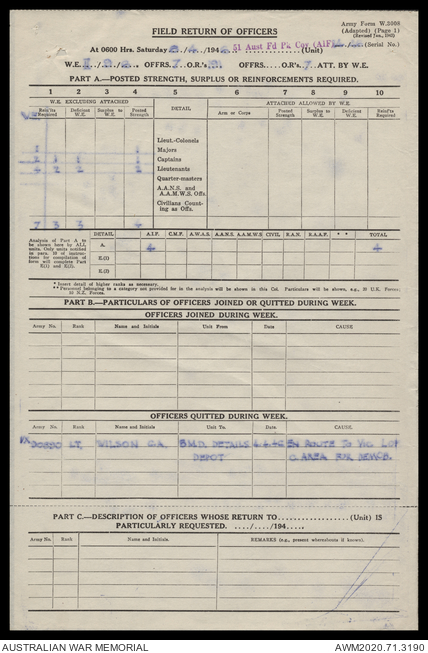 Army Form W.3008
(Adapted) (Page 1)
FIELD RETURN OF OFFICERS
At 0600 Hrs. Saturday 6/4/194 51 Aust Fd Pk Coy (AIF) (Unit) (Serial No.)
W.E. OFFRS. 7 O.R's. OFFRS. O.R's 7 ATT. BY W.E.
PART A.—POSTED STRENGTH, SURPLUS OR REINFORCEMENTS REQUIRED.
1 2 3 4 5 6 7 8 9 10
W.E. EXCLUDING ATTACHED
DETAIL
ATTACHED ALLOWED BY W.E.
Reinf'ts Required
Deficient W.E.
Surplus to W.E.
Posted Strength
Arm or Corps
Posted Strength
Surplus to W.E.
Deficient W.E.
Reinf'ts Required
Lieut.-Colonels
1 Majors 1
2 1 1 Captains 1
4 2 2 Lieutenants 2
Quarter-masters
A.A.N.S. and A.A.M.W.S. Offs.
Civilians Counting as Offs.
7 3 3 4
Analysis of Part A to be shown here by ALL units. Only units notified in para. 18 of instructions for compilation of form will complete Part E(1) and E(2).
DETAIL A.I.F. C.M.F. A.W.A.S. A.A.N.S. A.A.M.W.S CIVIL R.A.N. R.A.A.F. * * TOTAL
A. 4 4
E.(1)
E.(2)
* Insert detail of higher ranks as necessary.
** Personnel belonging to a category not provided for in the analysis will be shown in this Col. Particulars will be shown, e.g., 20 U.K. Forces; 10 N.Z. Forces.
PART B.—PARTICULARS OF OFFICERS JOINED OR QUITTED DURING WEEK.
OFFICERS JOINED DURING WEEK.
Army No. Rank Name and Initials Unit From Date CAUSE
OFFICERS QUITTED DURING WEEK.
Army No. Rank Name and Initials Unit To. Date CAUSE
LT. WILSON G.A. 5 M.D. DETAILS 4.4.46 En Route To
DEPOT AREA FOR DEMOB.
PART C.—DESCRIPTION OF OFFICERS WHOSE RETURN TO (Unit) IS
PARTICULARLY REQUESTED. ..../..../194....
Army No. Rank Name and Initials. REMARKS (e.g., present whereabouts if known).
AUSTRALIAN WAR MEMORIAL AWM2020.71.3190